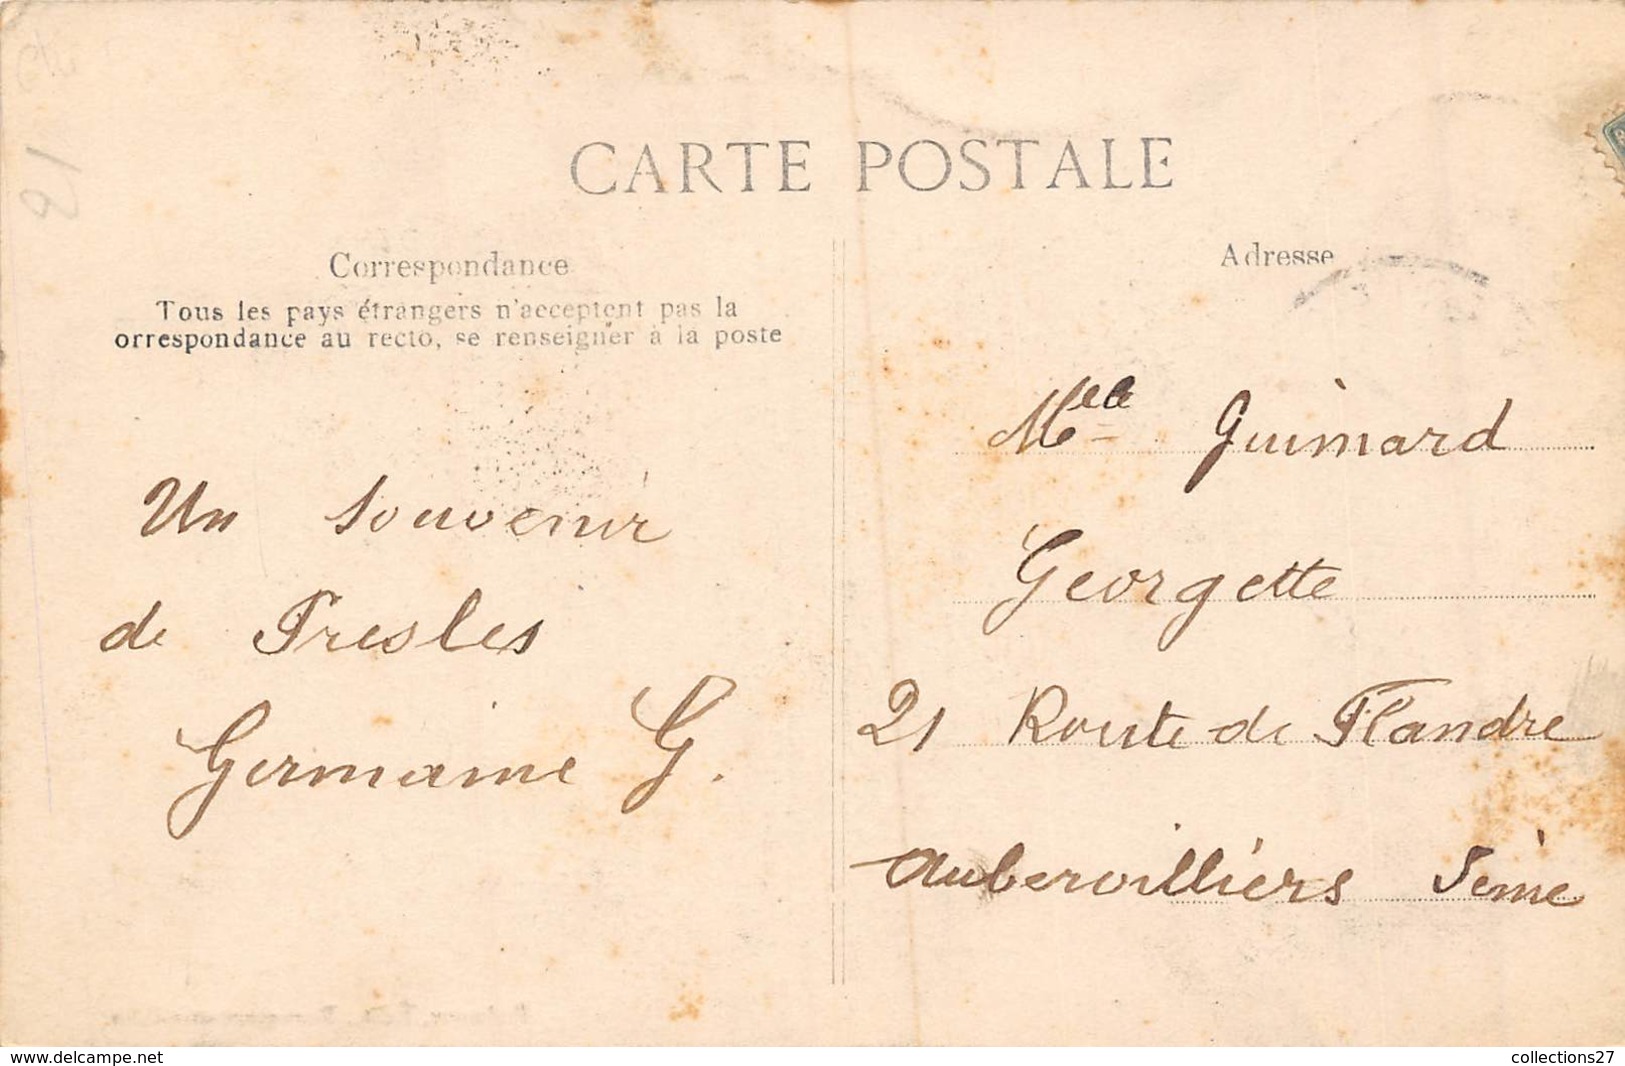 CARTE POSTALE
Correspondance
Tous les pays étrangers n'acceptent pas la
orrespondance au recto, se renseigner à la poste
Un souvenir
de Presles
Germaine G.
Adresse
Melle Guimard
Georgette
21 Route de Flandre
Aubervilliers Seine
www.delcampe.net
collections27